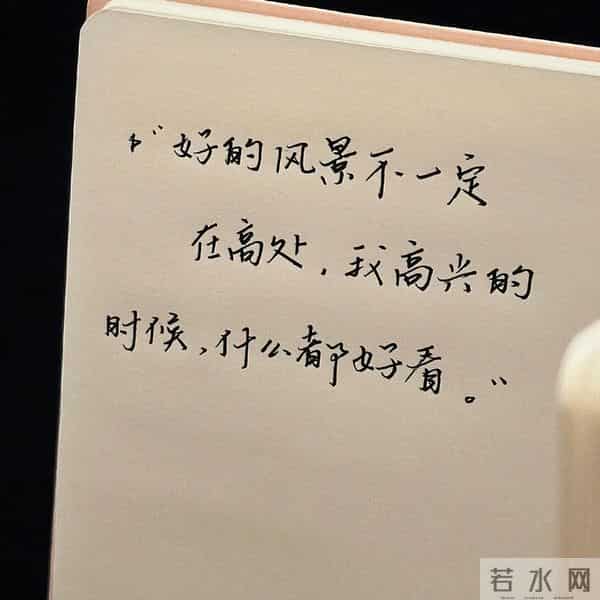 “好的风景不一定
在高处，我高兴的
时候，什么都好看。”
若水网